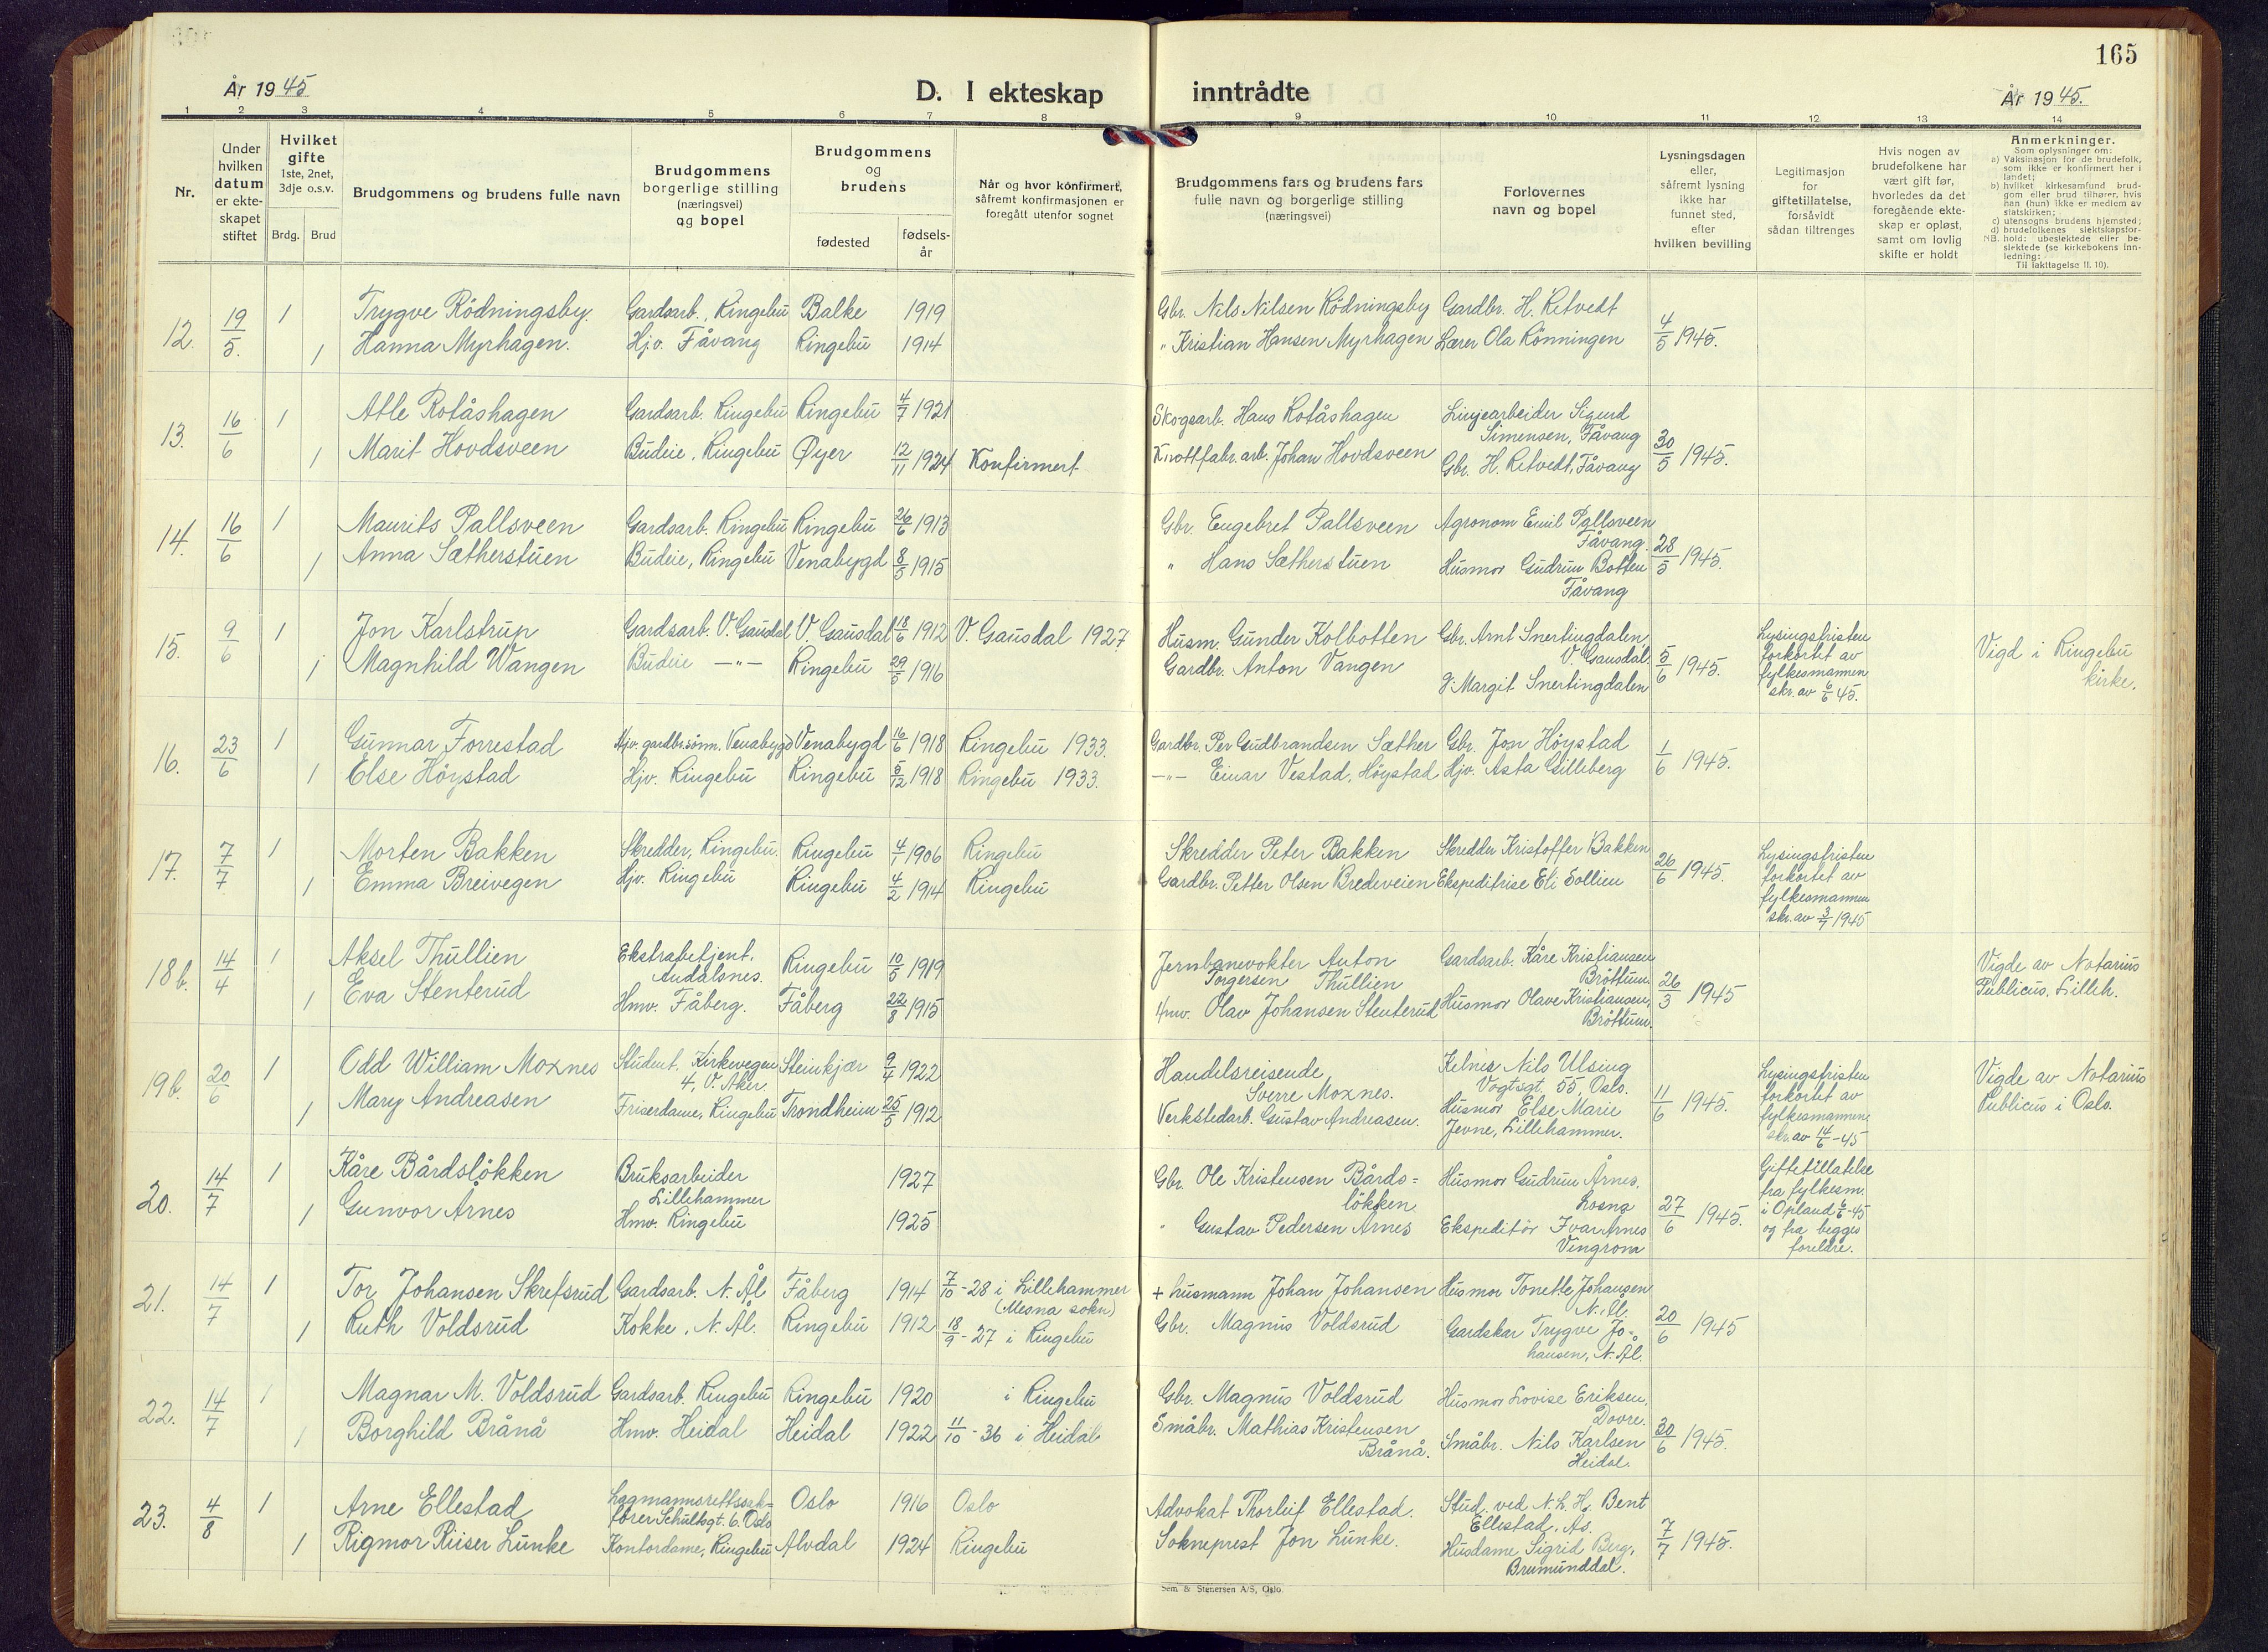 165
År 1945
D. I ekteskap inntrådte
År 1945.
1 2 3 4 5 6 7 8 9 10 11 12 13 14
Nr.
Under hvilken datum er ekteskapet stiftet
Hvilket gifte 1ste, 2net, 3dje o.s.v.
Brdg. Brud
Brudgommens og brudens fulle navn
Brudgommens borgerlige stilling (næringsvei) og bopel
Brudgommens og brudens
fødested
fødselsår
Når og hvor konfirmert, såfremt konfirmasjonen er foregått utenfor sognet
Brudgommens fars og brudens fars fulle navn og borgerlige stilling (næringsvei)
Forlovernes navn og bopel
Lysningsdagen eller, såfremt lysning ikke har funnet sted, efter hvilken bevilling
Legitimasjon for giftetillatelse, forsåvidt sådan tiltrenges
Hvis nogen av brudefolkene har vært gift før, hvorledes da det foregående ekteskap er opløst, samt om lovlig skifte er holdt
Anmerkninger.
Som oplysninger om:
a) Vaksinasjon for de brudefolk, som ikke er konfirmert her i landet;
b) hvilket kirkesamfund brudgom eller brud tilhører, hvis han (hun) ikke er medlem av statskirken;
c) utensogns brudens hjemsted;
d) brudefolkenes slektskapsforhold: ubeslektede eller beslektede (se kirkebokens innledning:
NB.
Til iakttagelse II. 10).
12. 19/5. 1 Trygve Rödningsby. Gardsarb., Ringebu Balke 1919 Gbr. Nils Nilsen Rödningsby Gardbr. H. Ritvedt
1 Hanna Myrhagen. Hjv. Fåvang Ringebu 1914 " Kristian Hansen Myrhagen Lærer Ola Rönningen 4/5 1945.
13. 16/6 1 Atle Rotåshagen Gardsarb. Ringebu Ringebu 4/7 1921 Skogsarb. Hans Rotåshagen Linjearbeider Sigurd Simensen, Fåvang
1 Marit Hovdsveen Budeie, Ringebu Øyer 12/11 1924 Konfirmert Knottfabr.arb. Johan Hovdsveen Gbr. H. Ritvedt, Fåvang 30/5 1945.
14. 16/6 1 Maurits Pallsveen Gardsarb. Ringebu Ringebu 26/6 1913 Gbr. Engebret Pallsveen Agronom Emil Pallsveen Fåvang.
1 Anna Sætherstuen Budeie, Ringebu Venabygd 8/5 1915 " Hans Sætherstuen Husmor Gudrun Botten Fåvang 28/5 1945.
15. 9/6 1 Jon Karlstrup Gardsarb. V. Gausdal V. Gausdal 18/6 1912 V. Gausdal 1927 Husm. Gunder Kolbotten Gbr. Arnt Snertingdalen V. Gausdal.
1 Magnhild Wangen Budeie —"— Ringebu 29/5 1916 Gardbr. Anton Vangen g. Margit Snertingdalen 5/6 1945. Lysingsfristen forkortet av fylkesmannen skr. av 6/6 45. Vigd i Ringebu kirke.
16. 23/6 1 Gunnar Forrestad Hjv. gardbr.sönn. Venabygd Venabygd 16/6 1918 Ringebu 1933. Gardbr. Per Gudbrandsen Sæther Gbr. Jon Höystad
1 Else Höystad Hjv. Ringebu Ringebu 5/12 1918 Ringebu 1933. —"— Einar Vestad, Höystad Hjv. Asta Gilleberg 1/6 1945.
17. 7/7 1 Morten Bakken Skredder, Ringebu. Ringebu 4/1 1906 Ringebu Skredder Peter Bakken Skredder Kristoffer Bakken
1 Emma Breivegen Hjv. Ringebu Ringebu 4/2 1914 Ringebu Gardbr. Petter Olsen Bredeveien Ekspeditrise Eli Sollien 26/6 1945. Lysingsfristen forkortet av fylkesmannen skr. av 3/7 1945
18b. 14/4 1 Aksel Thullien Ekstrabetjent. Andalsnes. Ringebu 10/5 1919 Jernbanevokter Anton Torgersen Thullien Gardsarb. Kåre Kristiansen Bröttum
1 Eva Stenterud Hmv. Fåberg. Fåberg 22/8 1915 Hmv. Olav Johansen Stenterud Husmor Olave Kristiansen, Bröttum. 26/3 1945 Vigde av Notarius Publicus, Lilleh.
19b. 20/6 1 Odd William Moxnes Student, Kirkevegen 4, V. Aker Steinkjær 9/4 1922 Handelsreisende Sverre Moxnes. Kelner Nils Ulsing Vogtsgt. 55, Oslo.
1 Mary Andreasen Friserdame, Ringebu Trondheim 25/5 1912 Verkstedarb. Gustav Andreasen. Husmor Else Marie Jevne, Lillehammer. 11/6 1945. Lysingsfristen forkortet av fylkesmannen skr. av 14/6-45 Vigde av Notarius Publicus i Oslo.
20. 14/7 1 Kåre Bårdslökken Bruksarbeider Lillehammer 1927 Gbr. Ole Kristensen Bårdslökken Husmor Gudrun Årnes, Losna
1 Gunvor Årnes Hmv. Ringebu 1925 " Gustav Pedersen Årnes Ekspeditör Ivar Årnes Vingrom 27/6 1945. Giftetillatelse fra fylkesm. i Opland 6/6-45 og fra begges foreldre.
21. 14/7 1 Tor Johansen Skrefsrud Gardsarb. N. Ål Fåberg 1914 7/10-28 i Lillehammer (Mesna sokn) + husmann Johan Johansen Husmor Tonette Johansen N. Ål.
1 Ruth Voldsrud Kokke, N. Ål. Ringebu 1912 18/9-27 i Ringebu Gbr. Magnus Voldsrud Gardskar Trygve Johansen, N. Ål. 20/6 1945
22. 14/7 1 Magnar M. Voldsrud Gardsarb. Ringebu Ringebu 1920 i Ringebu Gbr. Magnus Voldsrud Husmor Lovise Eriksen, Dovre.
1 Borghild Brånå Hmv. Heidal Heidal 1922 11/10-36 i Heidal Småbr. Mathias Kristensen Brånå. Småbr. Nils Karlsen Heidal. 30/6 1945.
23. 4/8 1 Arne Ellestad Lagmannsrettssakförer Schultsgt. 6. Oslo Oslo 1916 Oslo Advokat Thorleif Ellestad. Stud. ved N.L.H. Bent Ellestad, Ås.
1 Rigmor Riiser Lunke Kontordame, Ringebu Alvdal 1924 Ringebu Sokneprest Jon Lunke. Husdame Sigrid Berg, Brumunddal. 7/7 1945.
Sem & Stenersen A/S, Oslo